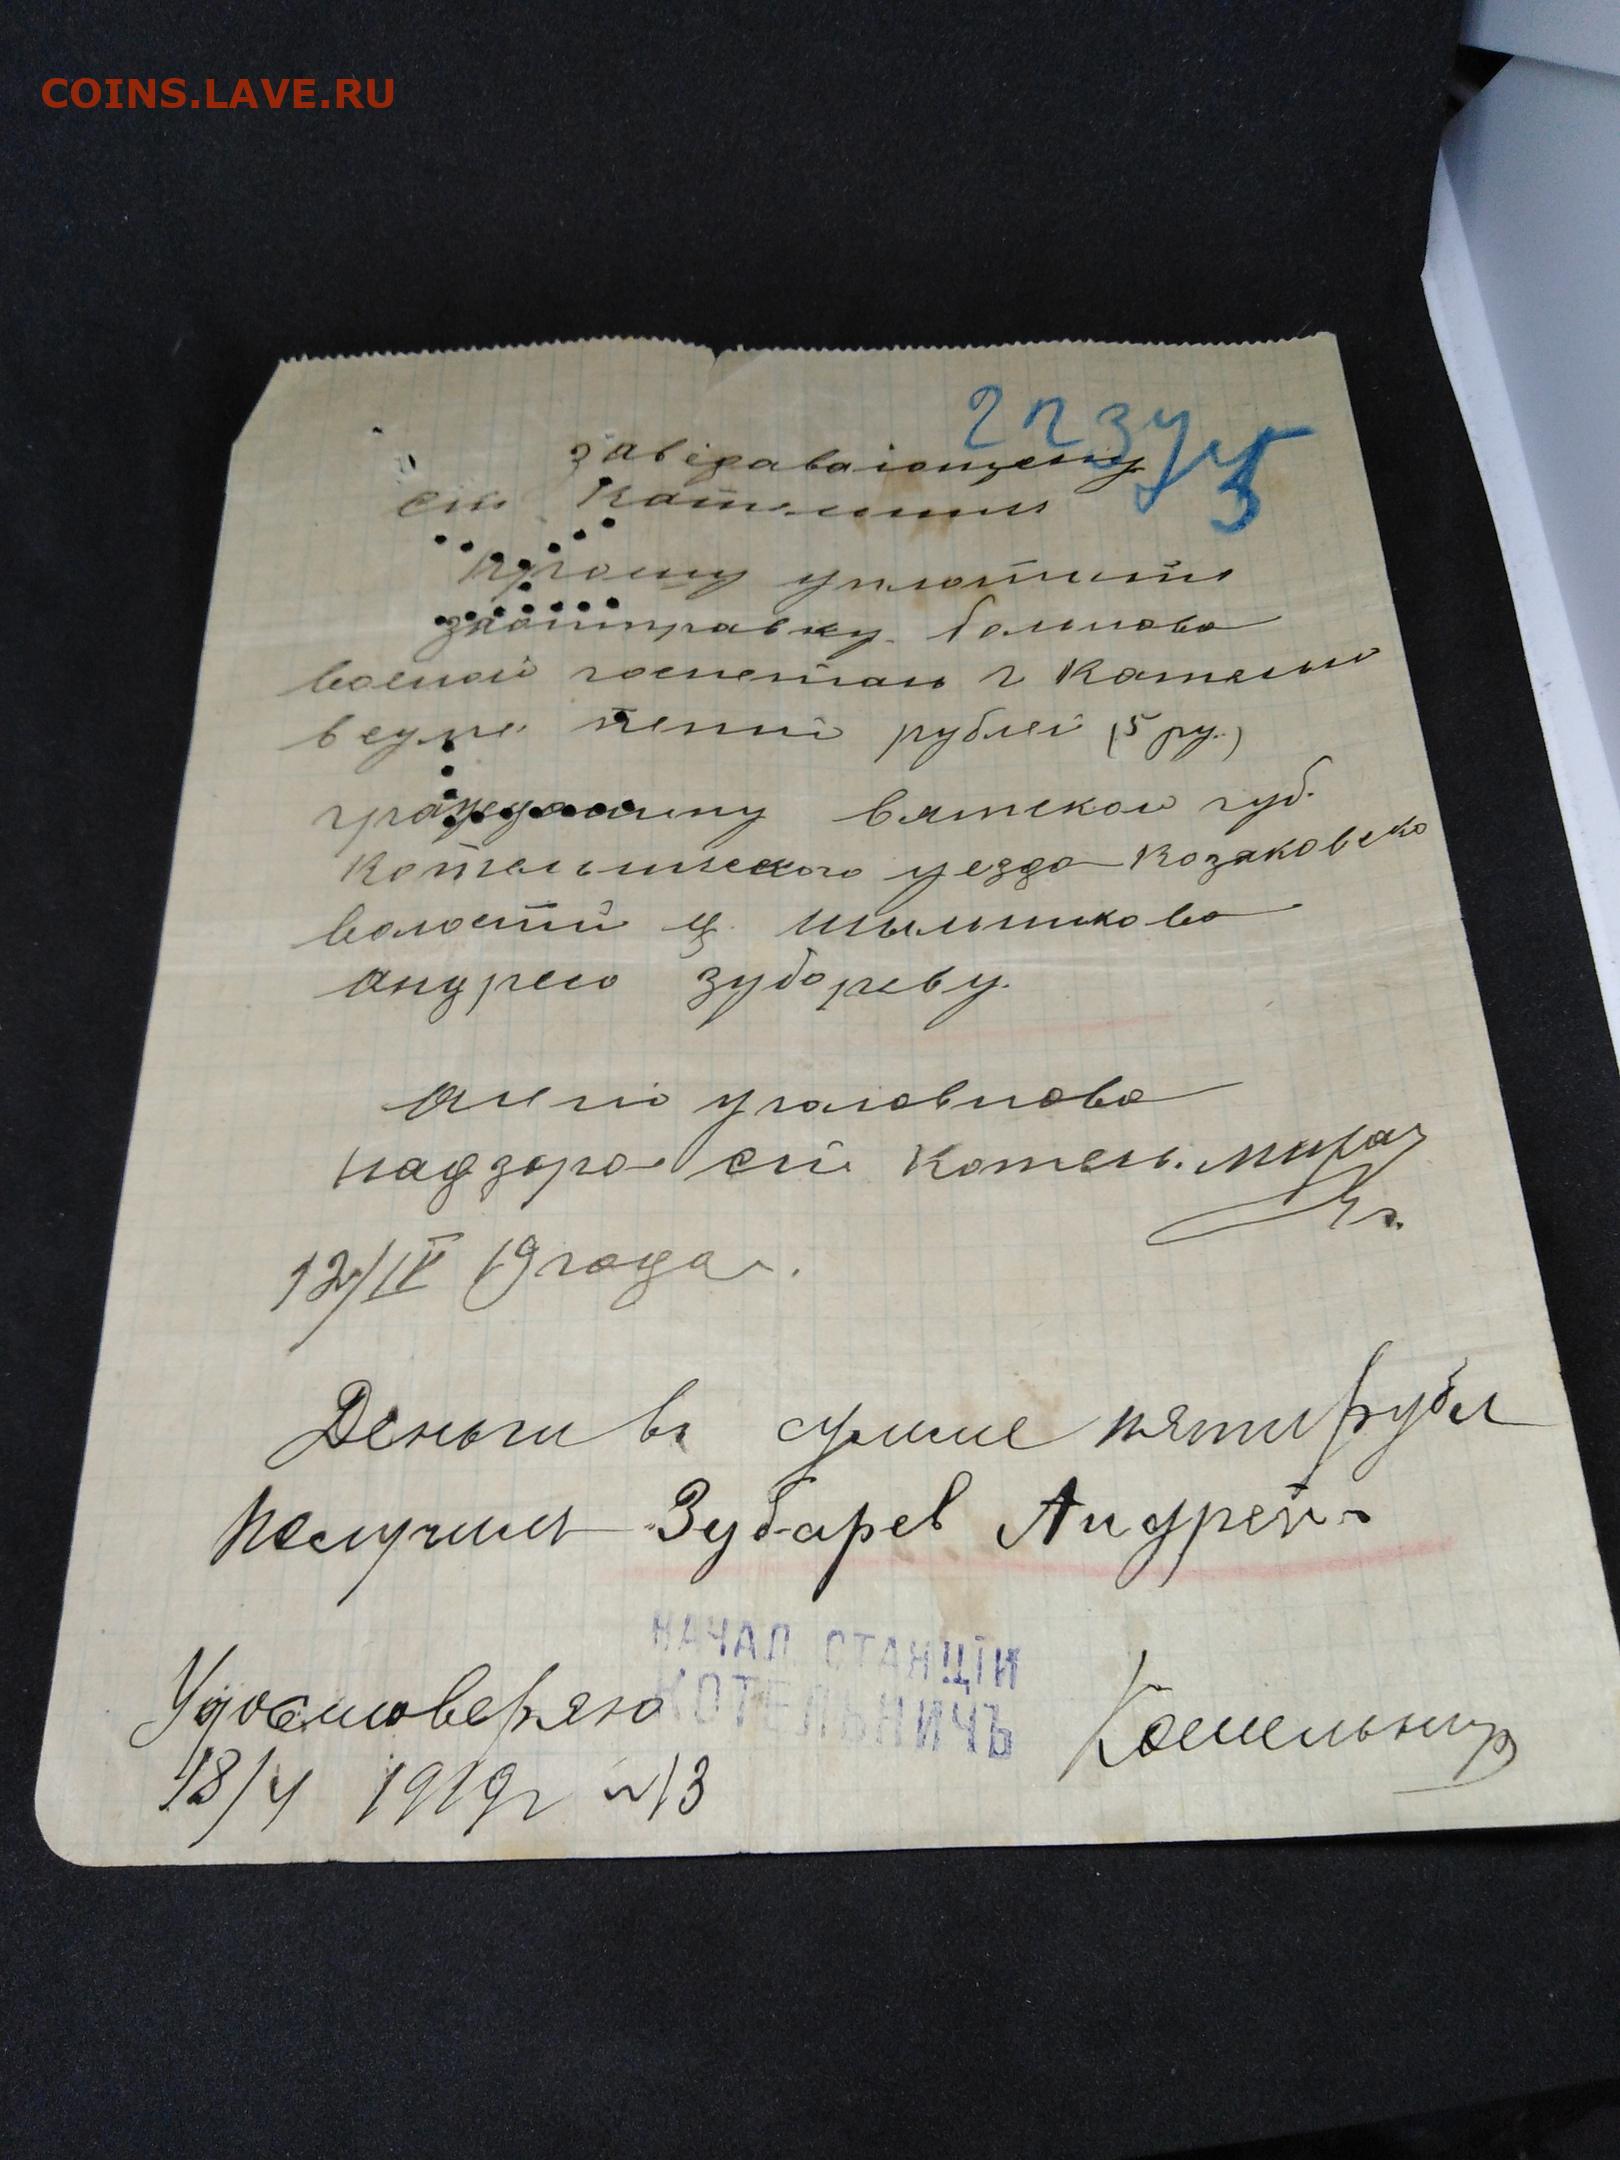 COINS.LAVE.RU
5
завѣдавающему
ст Кательнич
Прошу уплотить
заотправку больнова
воений госпетань г Котельн
в суме пети рублей (5 ру.)
гражданину вятской губ.
Котельническаго уезда Козаковско
волостй д. Шыльникова
Андрею Зубореву.
Аген уголовнова
надзора ст Котель.
12/IV 19 года.
Деньги в сумме пяти рубл
получил Зубарев Андрей
НАЧАЛ. СТАНЦІИ
КОТЕЛЬНИЧЪ
Удостоверяю
18/4 1919 г №13